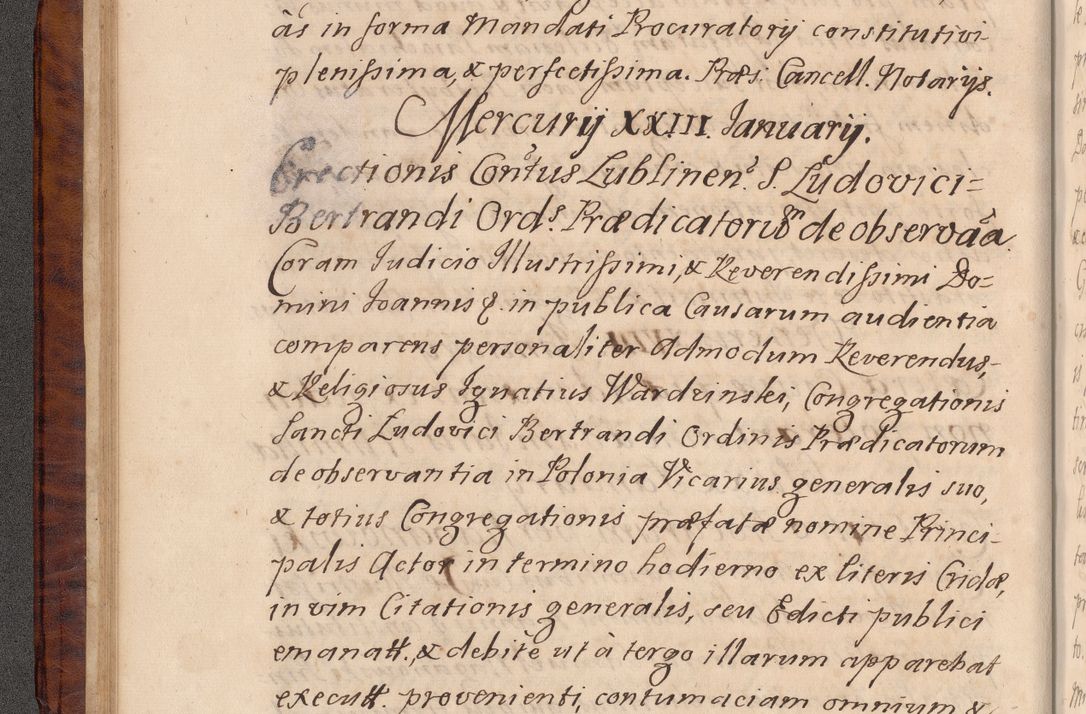 ás in forma Mandati Procuratorij constitutivi
plenissima, & perfectissima. Præs: Cancell. Notarijs.
Mercurij XXIII. Ianuarij.
Erectionis Contus Lublinen: S. Ludovici=
Bertrandi Ords. Prædicatoriũ de observãa
Coram Iudicio Illustrissimi, & Reverendissimi Do=
mini Ioannis &. in publica Causarum audientia
comparens personaliter Admodum Reverendus,
& Religiosus Ignatius Wardzinski, Congregationis
Sancti Ludovici Bertrandi Ordinis Prædicatorum
de observantia in Polonia Vicarius generalis suo,
& totius Congregationis præfatæ nomine Princi=
palis Actor in termino hodierno ex literis Cridæ,
in vim Citationis generalis, seu Edicti publici
emanatt., & debitè ut à tergo illarum apparebat
executt. provenienti, contumaciam omnium &